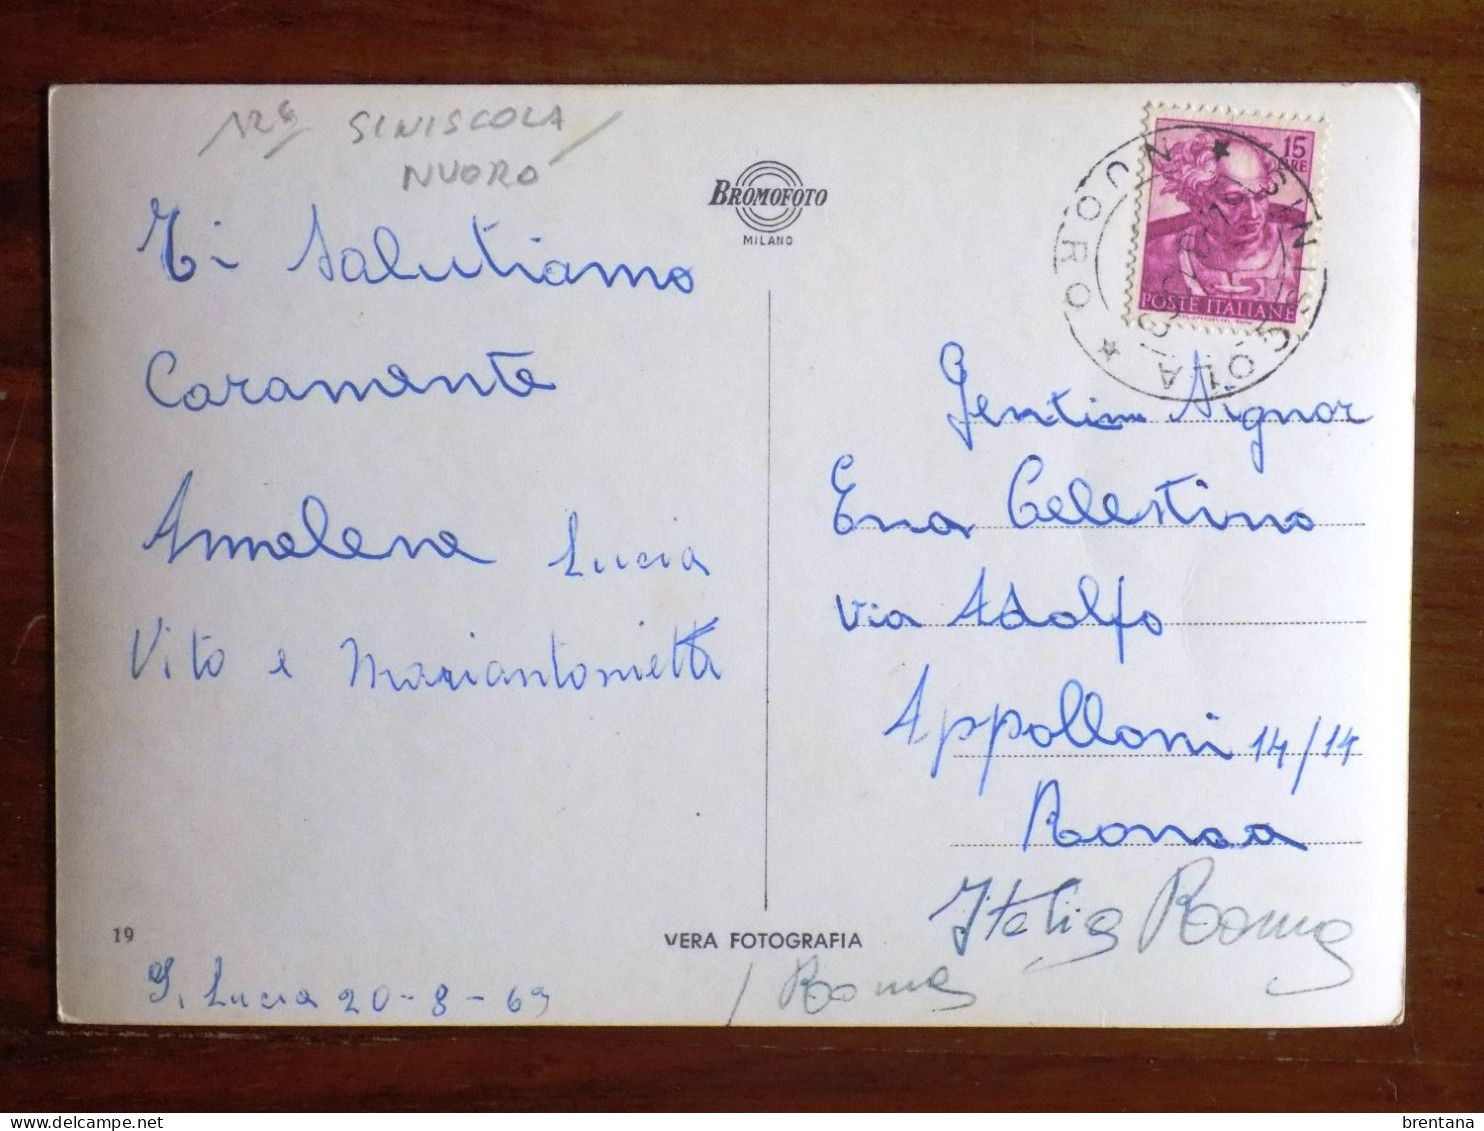 SINISCOLA
NUORO
BROMOFOTO
MILANO
15
LIRE
POSTE ITALIANE
SINISCOLA
★ NUORO ★
Ti Salutiamo
Caramente
Annalena Lucia
Vito e Mariantonietta
Gentim Signor
Ena Celestino
via Adolfo
Appolloni 14/14
Roma
Italia Roma
19
VERA FOTOGRAFIA
S. Lucia 20-8-69
Roma
brentana